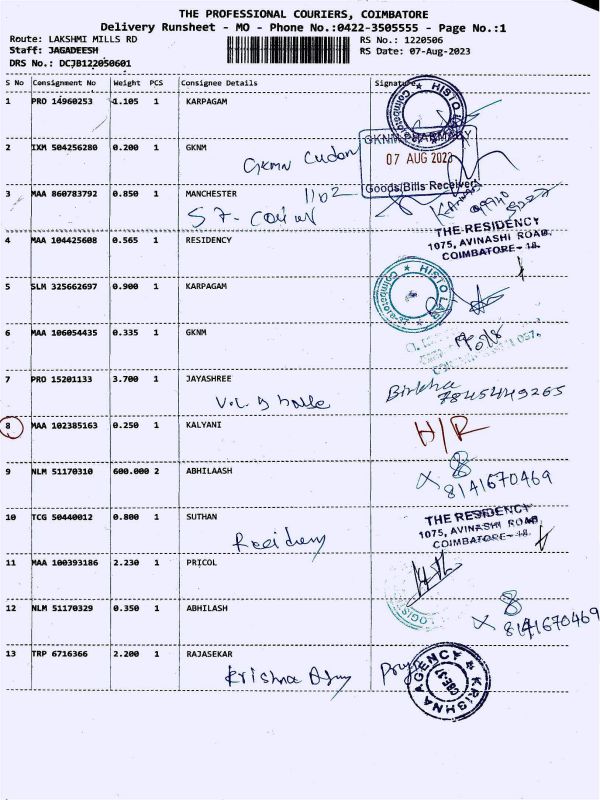 THE PROFESSIONAL COURIERS, COIMBATORE
Delivery Runsheet - MO - Phone No.:0422-3505555 - Page No.:1
Route: LAKSHMI MILLS RD RS No.: 1220506
Staff: JAGADEESH RS Date: 07-Aug-2023
DRS No.: DCJB122050601
S No Consignment No Weight PCS Consignee Details Signature
1 PRO 14960253 1.105 1 KARPAGAM
HISTO LAB
Coimbatore
2 IXM 504256280 0.200 1 GKNM
GKNM PHARMACY
07 AUG 2023
Goods/Bills Received
3 MAA 860783792 0.850 1 MANCHESTER
1102
4 MAA 104425608 0.565 1 RESIDENCY
THE RESIDENCY
1075, AVINASHI ROAD,
COIMBATORE- 18.
5 SLM 325662697 0.900 1 KARPAGAM
HISTO LAB
Coimbatore-37
6 MAA 106054435 0.335 1 GKNM
7 PRO 15201133 3.700 1 JAYASHREE
7845449265
8 MAA 102385163 0.250 1 KALYANI
H/R
9 NLM 51170310 600.000 2 ABHILAASH
8141670469
10 TCG 50440012 0.800 1 SUTHAN
THE RESIDENCY
1075, AVINASHI ROAD,
COIMBATORE- 18.
11 MAA 100393186 2.230 1 PRICOL
12 NLM 51170329 0.350 1 ABHILASH
8141670469
13 TRP 6716366 2.200 1 RAJASEKAR
Krishna Agny Priya
KRISHNA AGENCY
CBE-37